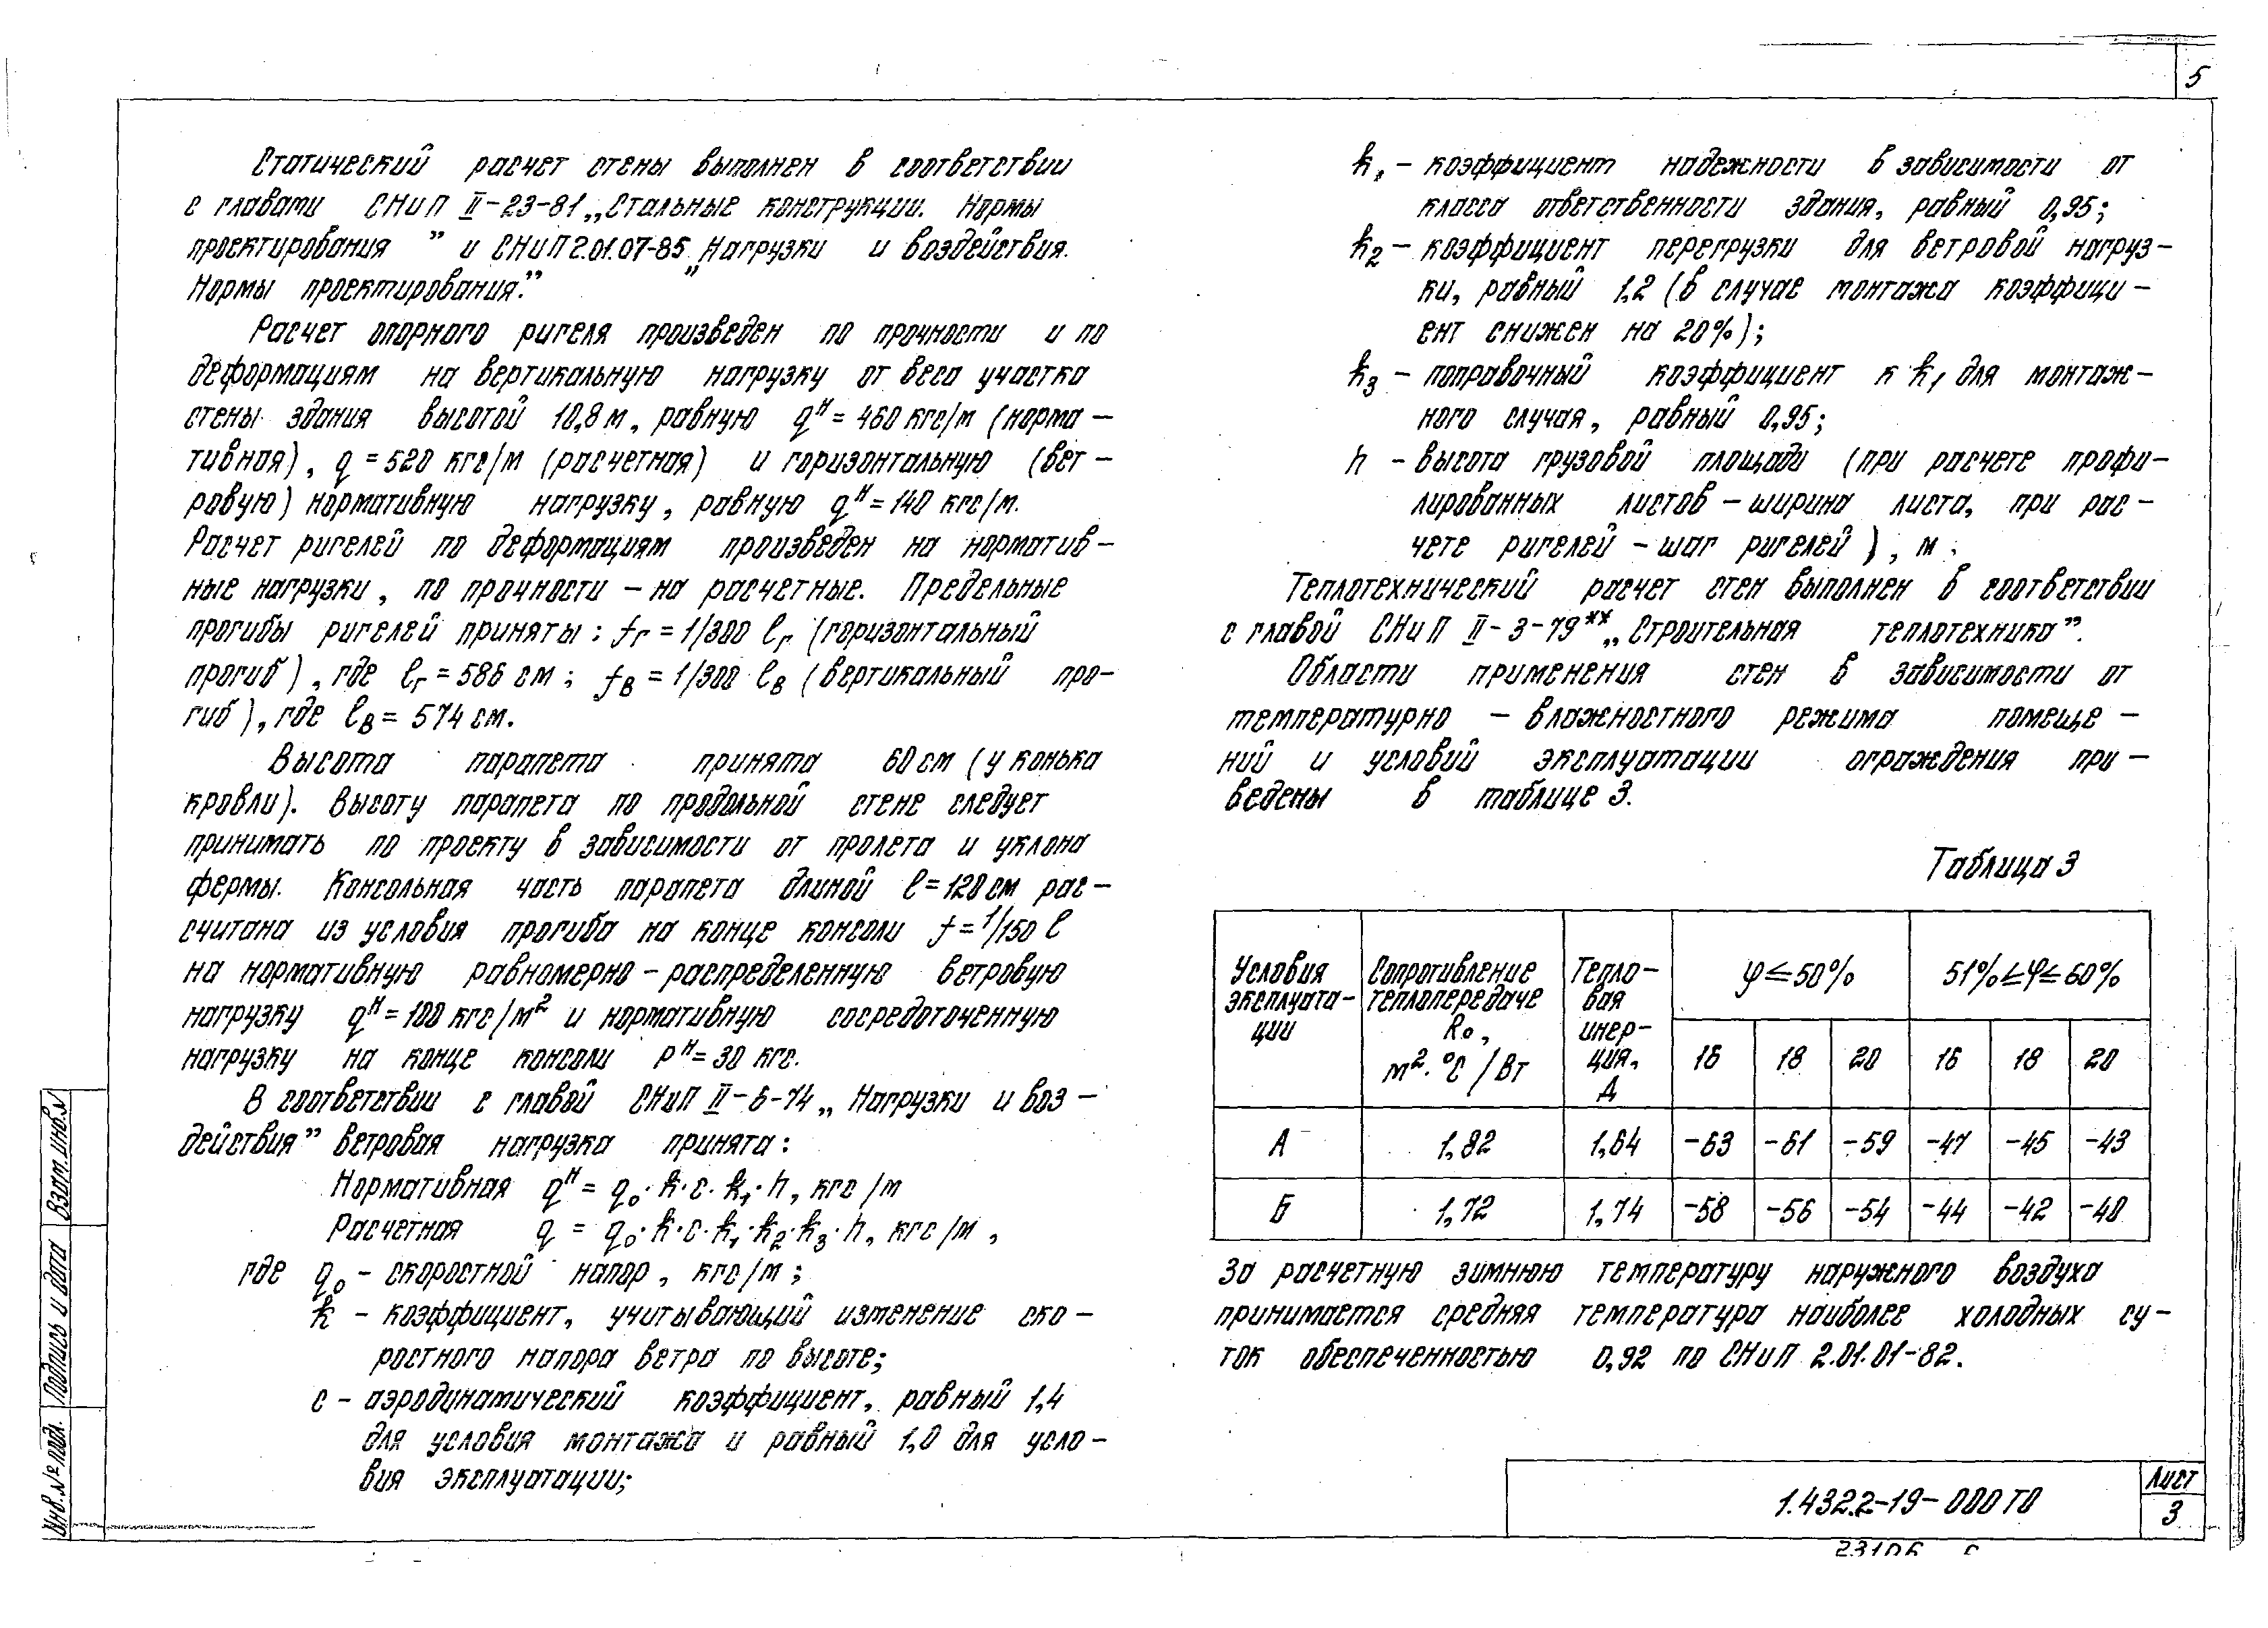 5
Статический расчет стены выполнен в соответствии
с главами СНиП II-23-81 „Стальные конструкции. Нормы
проектирования” и СНиП 2.01.07-85 „Нагрузки и воздействия.
Нормы проектирования.”
Расчет опорного ригеля произведен по прочности и по
деформациям на вертикальную нагрузку от веса участка
стены здания высотой 10,8 м, равную qᴴ = 460 кгс/м (норма-
тивная), q = 520 кгс/м (расчетная) и горизонтальную (вет-
ровую) нормативную нагрузку, равную qᴴ = 140 кгс/м.
Расчет ригелей по деформациям произведен на норматив-
ные нагрузки, по прочности – на расчетные. Предельные
прогибы ригелей приняты: fг = 1/300 ℓг (горизонтальный
прогиб), где ℓг = 586 см; fв = 1/300 ℓв (вертикальный про-
гиб), где ℓв = 574 см.
Высота парапета принята 60 см (у конька
кровли). Высоту парапета по продольной стене следует
принимать по проекту в зависимости от пролета и уклона
фермы. Консольная часть парапета длиной ℓ = 120 см рас-
считана из условия прогиба на конце консоли f = 1/150 ℓ
на нормативную равномерно-распределенную ветровую
нагрузку qᴴ = 100 кгс/м² и нормативную сосредоточенную
нагрузку на конце консоли Pᴴ = 30 кгс.
В соответствии с главой СНиП II-6-74 „Нагрузки и воз-
действия” ветровая нагрузка принята:
Нормативная qᴴ = q₀·k·c·k₁·h, кгс/м
Расчетная q = q₀·k·c·k₁·k₂·k₃·h, кгс/м,
где q₀ – скоростной напор, кгс/м;
k – коэффициент, учитывающий изменение ско-
ростного напора ветра по высоте;
c – аэродинамический коэффициент, равный 1,4
для условия монтажа и равный 1,0 для усло-
вия эксплуатации;
k₁ – коэффициент надежности в зависимости от
класса ответственности здания, равный 0,95;
k₂ – коэффициент перегрузки для ветровой нагруз-
ки, равный 1,2 (в случае монтажа коэффици-
ент снижен на 20%);
k₃ – поправочный коэффициент к k₁ для монтаж-
ного случая, равный 0,95;
h – высота грузовой площади (при расчете профи-
лированных листов – ширина листа, при рас-
чете ригелей – шаг ригелей), м.
Теплотехнический расчет стен выполнен в соответствии
с главой СНиП II-3-79** „Строительная теплотехника”.
Области применения стен в зависимости от
температурно – влажностного режима помеще-
ний и условий эксплуатации ограждения при-
ведены в таблице 3.
Таблица 3
Условия эксплуата-ции | Сопротивление теплопередаче R₀, м²·°С/Вт | Тепло-вая инер-ция, Д | φ ≤ 50% | 51% ≤ φ ≤ 60%
16 | 18 | 20 | 16 | 18 | 20
А | 1,82 | 1,64 | -63 | -61 | -59 | -47 | -45 | -43
Б | 1,72 | 1,74 | -58 | -56 | -54 | -44 | -42 | -40
За расчетную зимнюю температуру наружного воздуха
принимается средняя температура наиболее холодных су-
ток обеспеченностью 0,92 по СНиП 2.01.01-82.
Инв. № подл. Подпись и дата Взам. инв. №
1.432.2-19-000 ТО
Лист
3
23106